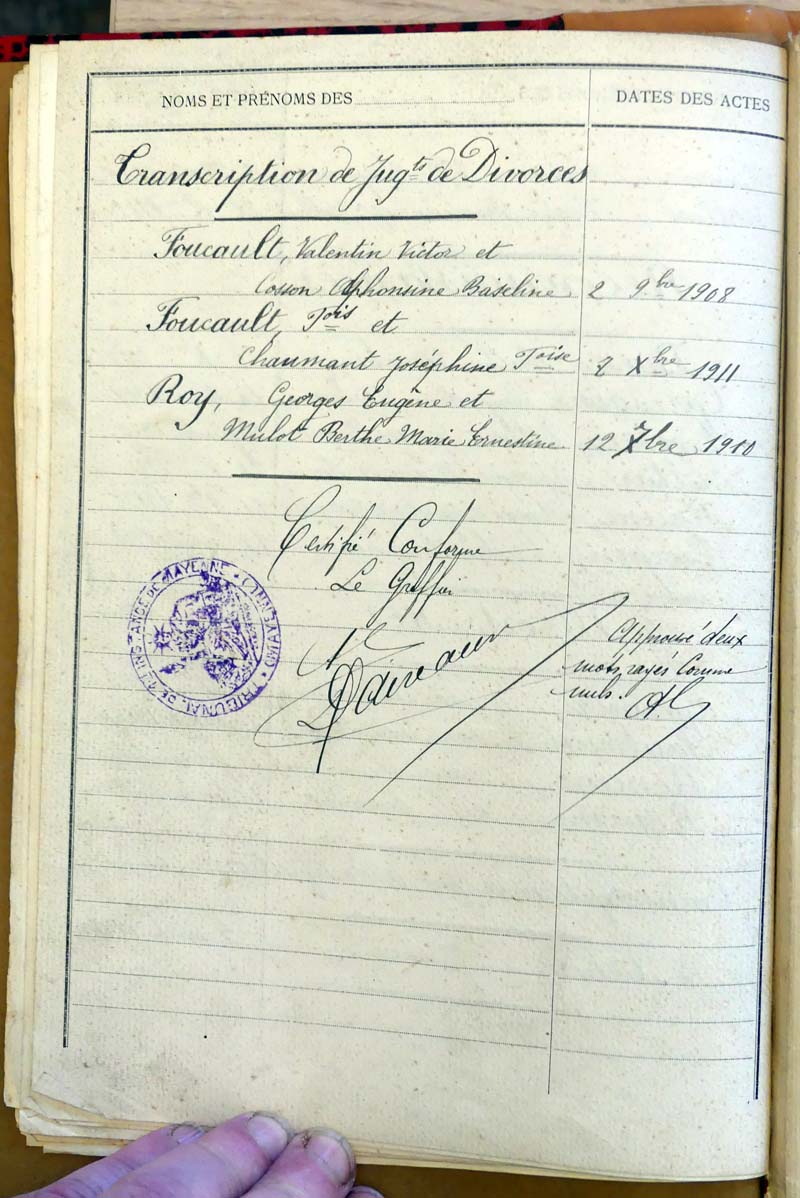 NOMS ET PRÉNOMS DES
DATES DES ACTES
Transcription de Jugts de Divorces
Foucault, Valentin Victor et
Cosson Alphonsine Baseline 2 9bre 1908
Foucault, Fois et
Chaumant Joséphine Foise 2 Xbre 1911
Roy, Georges Eugène et
Mulot Berthe Marie Ernestine 12 7bre 1910
Certifié Conforme
Le Greffier
Approuvé deux
mots rayés Comme
nuls.
TRIBUNAL DE 1ère INSTANCE DE MAYENNE (MAYENNE)